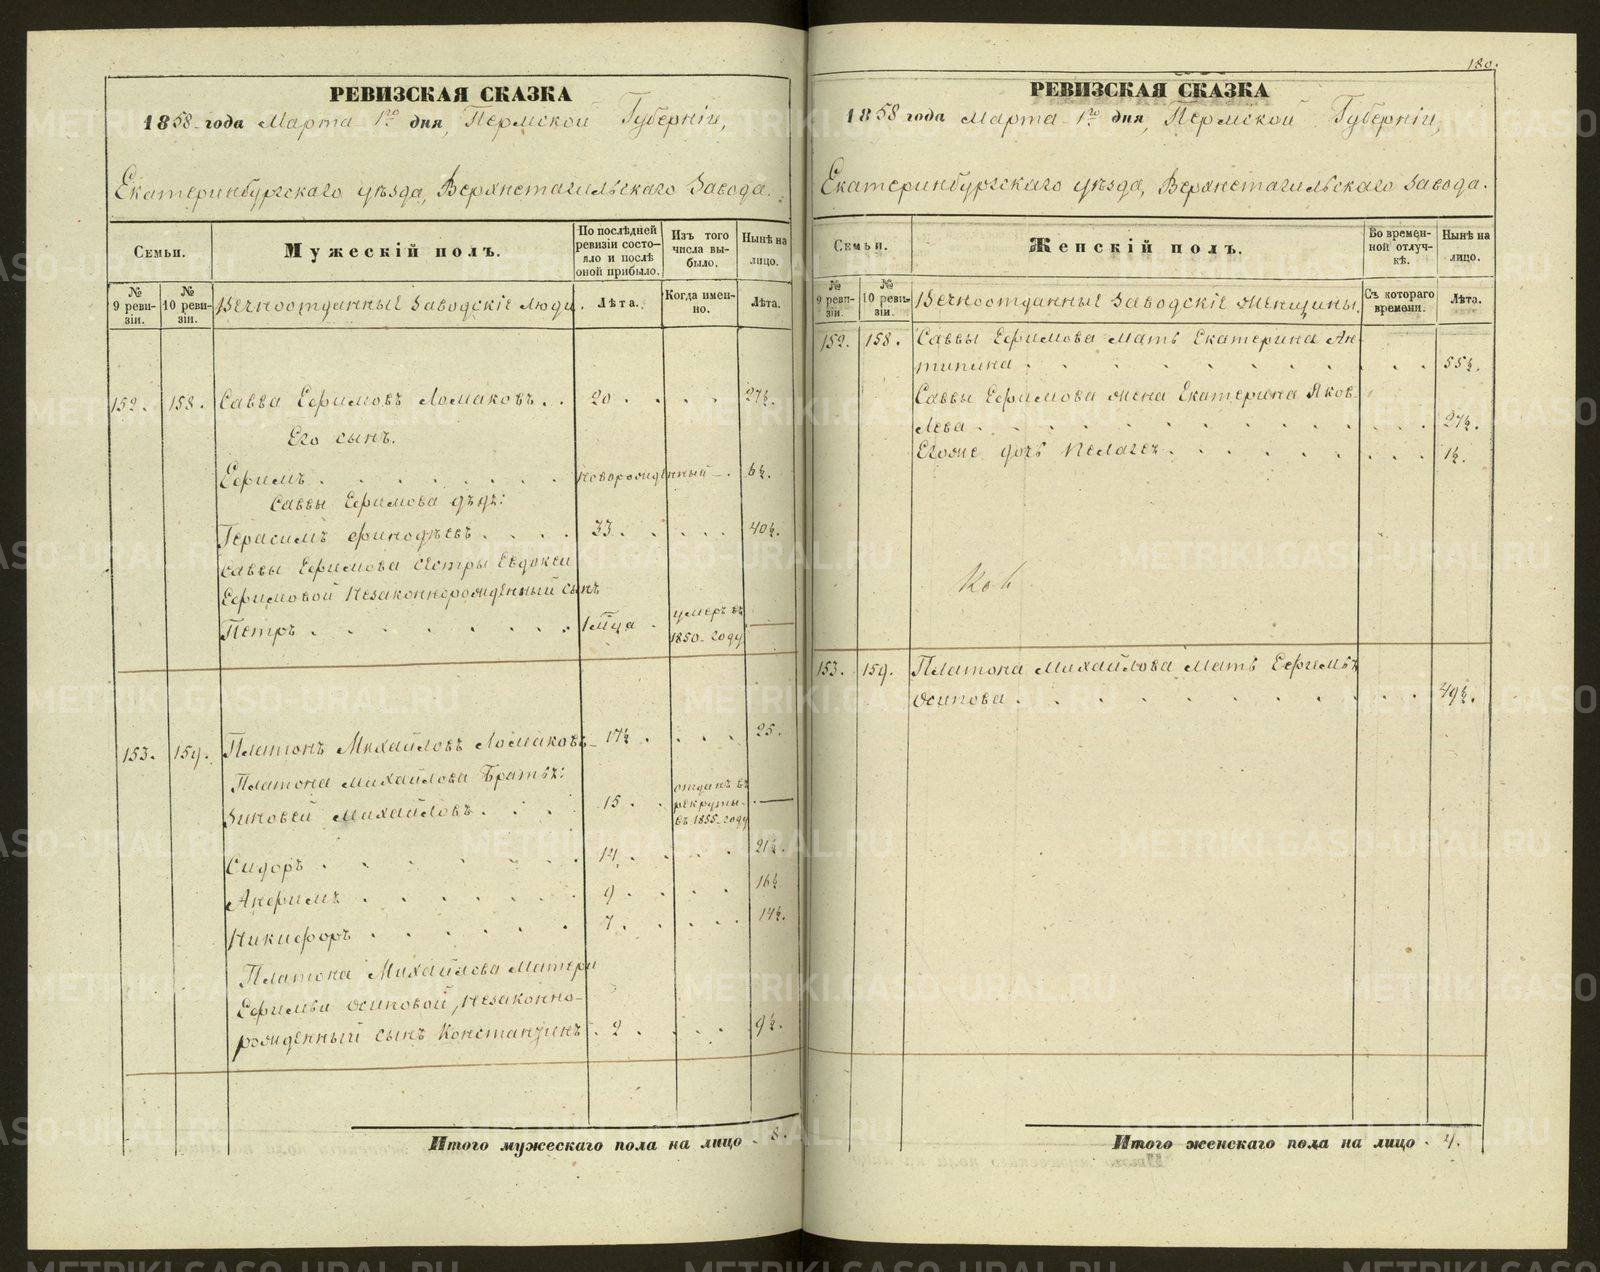 РЕВИЗСКАЯ СКАЗКА
1858 года Марта 1го дня, Пермской Губерніи,
Екатеринбургскаго уѣзда, Верхнетагильскаго Завода.
Семьи.
Мужескій полъ.
По послѣдней ревизіи состояло и послѣ оной прибыло.
Изъ того числа выбыло.
Нынѣ на лицо.
№ 9 ревизіи.
№ 10 ревизіи.
Вечноотданные Заводскіе люди.
Лѣта.
Когда именно.
Лѣта.
152. 158. Савва Ефимовъ Ломаковъ. . 20 . . . . 27½.
Его сынъ.
Ефимъ . . . . . . . новорожденный . 6½.
Саввы Ефимова дядя:
Герасимъ Финодѣевъ . . . . 33 . . . . . 40½.
Саввы Ефимова сестры Евдокеи
Ефимовой Незаконнорожденный сынъ
Петръ . . . . . . . . 1 мца . умеръ въ 1850 году —
153. 159. Платонъ Михайловъ Ломаковъ 17½ . . . . 25.
Платона Михайлова Братья:
Зиновей Михайловъ . . . 15 . . отданъ въ рекруты въ 1855 году —
Сидоръ . . . . . . 14 . . . . 21½.
Анфимъ . . . . . . 9 . . . . 16½
Никифоръ . . . . . . 7 . . . . 14½.
Платона Михайлова матери
Ефимьи Осиповой, Незаконно-
рожденный сынъ Константинъ . 2 . . . . 9½.
Итого мужескаго пола на лицо . 8.
180.
РЕВИЗСКАЯ СКАЗКА
1858 года Марта 1го дня, Пермской Губерніи,
Екатеринбургскаго уѣзда, Верхнетагильскаго Завода.
Семьи.
Женскій полъ.
Во временной отлучкѣ.
Нынѣ на лицо.
№ 9 ревизіи.
№ 10 ревизіи.
Вечноотданные Заводскіе Женщины.
Съ котораго времени.
Лѣта.
152. 158. Саввы Ефимова мать Екатерина Ан-
типина . . . . . . . . . . . 55½.
Саввы Ефимова жена Екатерина Яков-
лева . . . . . . . . . . . . 27½.
Егоже дочь Пелагея . . . . . . . . 1½.
153. 159. Платона Михайлова Мать Ефимья
Осипова . . . . . . . . . . . 49½.
Итого женскаго пола на лицо . 4.
METRIKI.GASO-URAL.RU